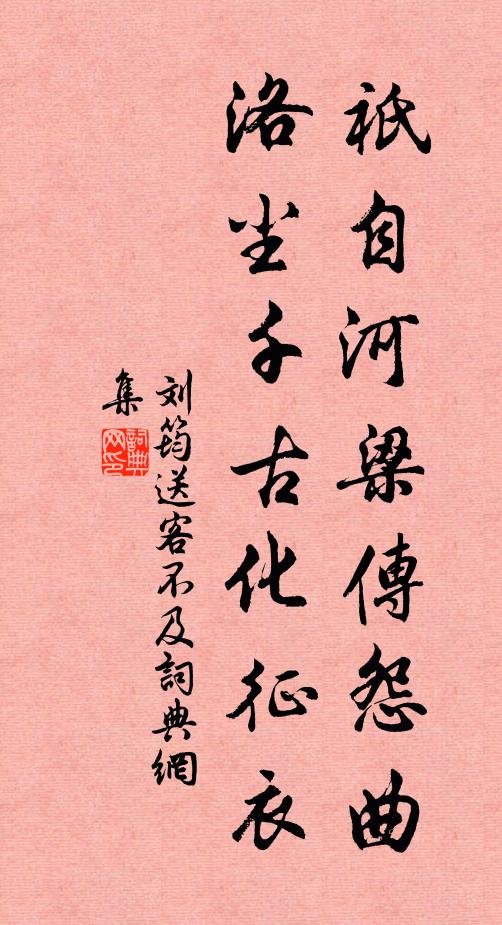 祇自河梁傳怨曲
洛尘千古化征衣
刘筠送客不及詞典網
集
詞典网印